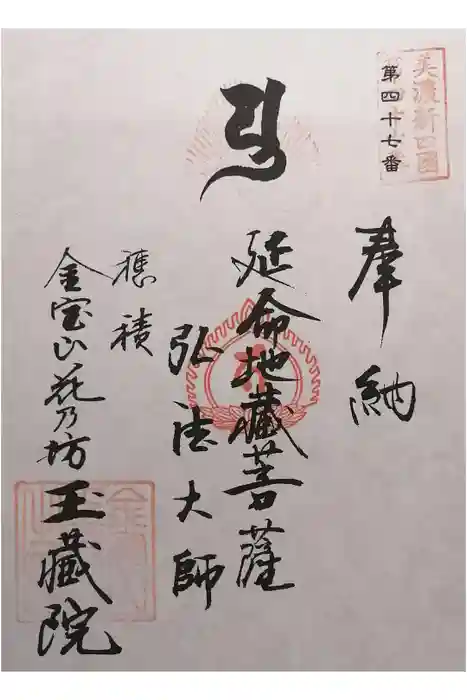 美濃新四国
第四十七番
奉納
延命地藏菩薩
弘法大師
穂積
金宝山花乃坊
玉藏院